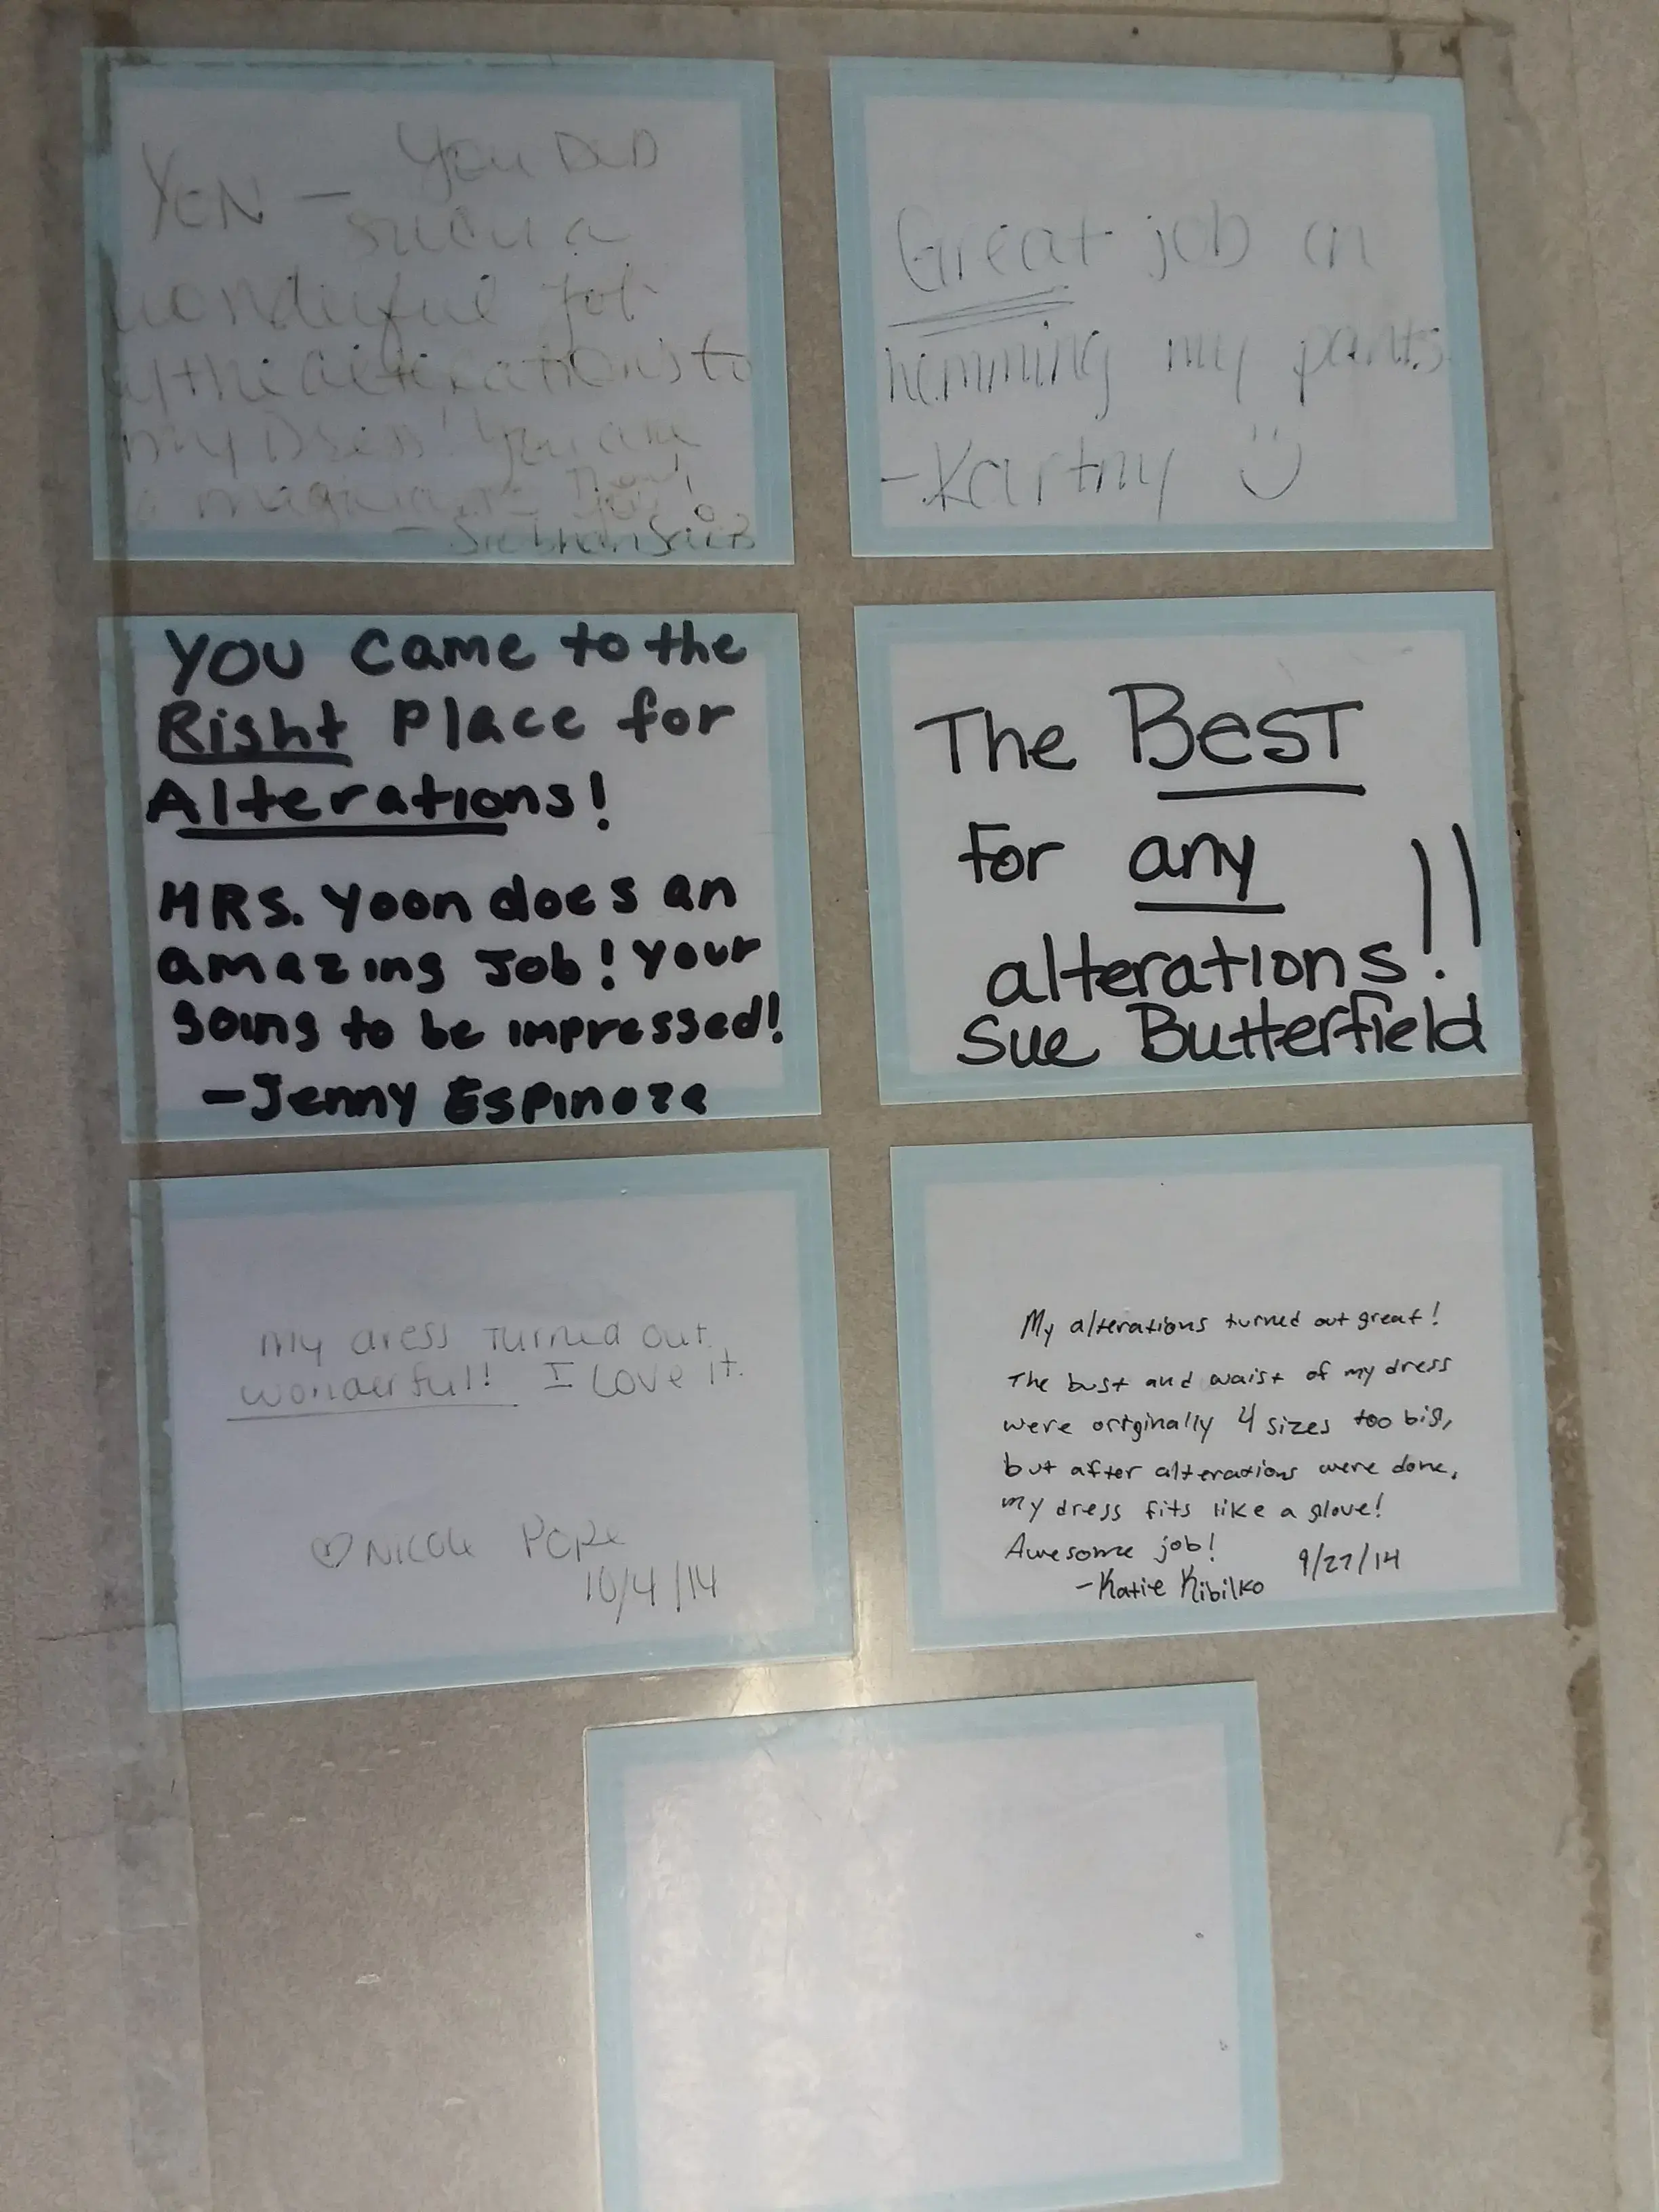 YEN — You DID
such a
wonderful job
the alterations to
my Dress! You are
a magician
Great job on
hemming my pants
-Kartny
You came to the
Right Place for
Alterations!
MRS. Yoon does an
amazing Job! Your
going to be impressed!
-Jenny Espinoza
The BesT
For any
alterations!!!
Sue Butterfield
My dress turned out
wonderful! I love it.
♡ Nicole Pope
10/4/14
My alterations turned out great!
The bust and waist of my dress
were originally 4 sizes too big,
but after alterations were done,
my dress fits like a glove!
Awesome job!
9/27/14
-Katie Kibilko